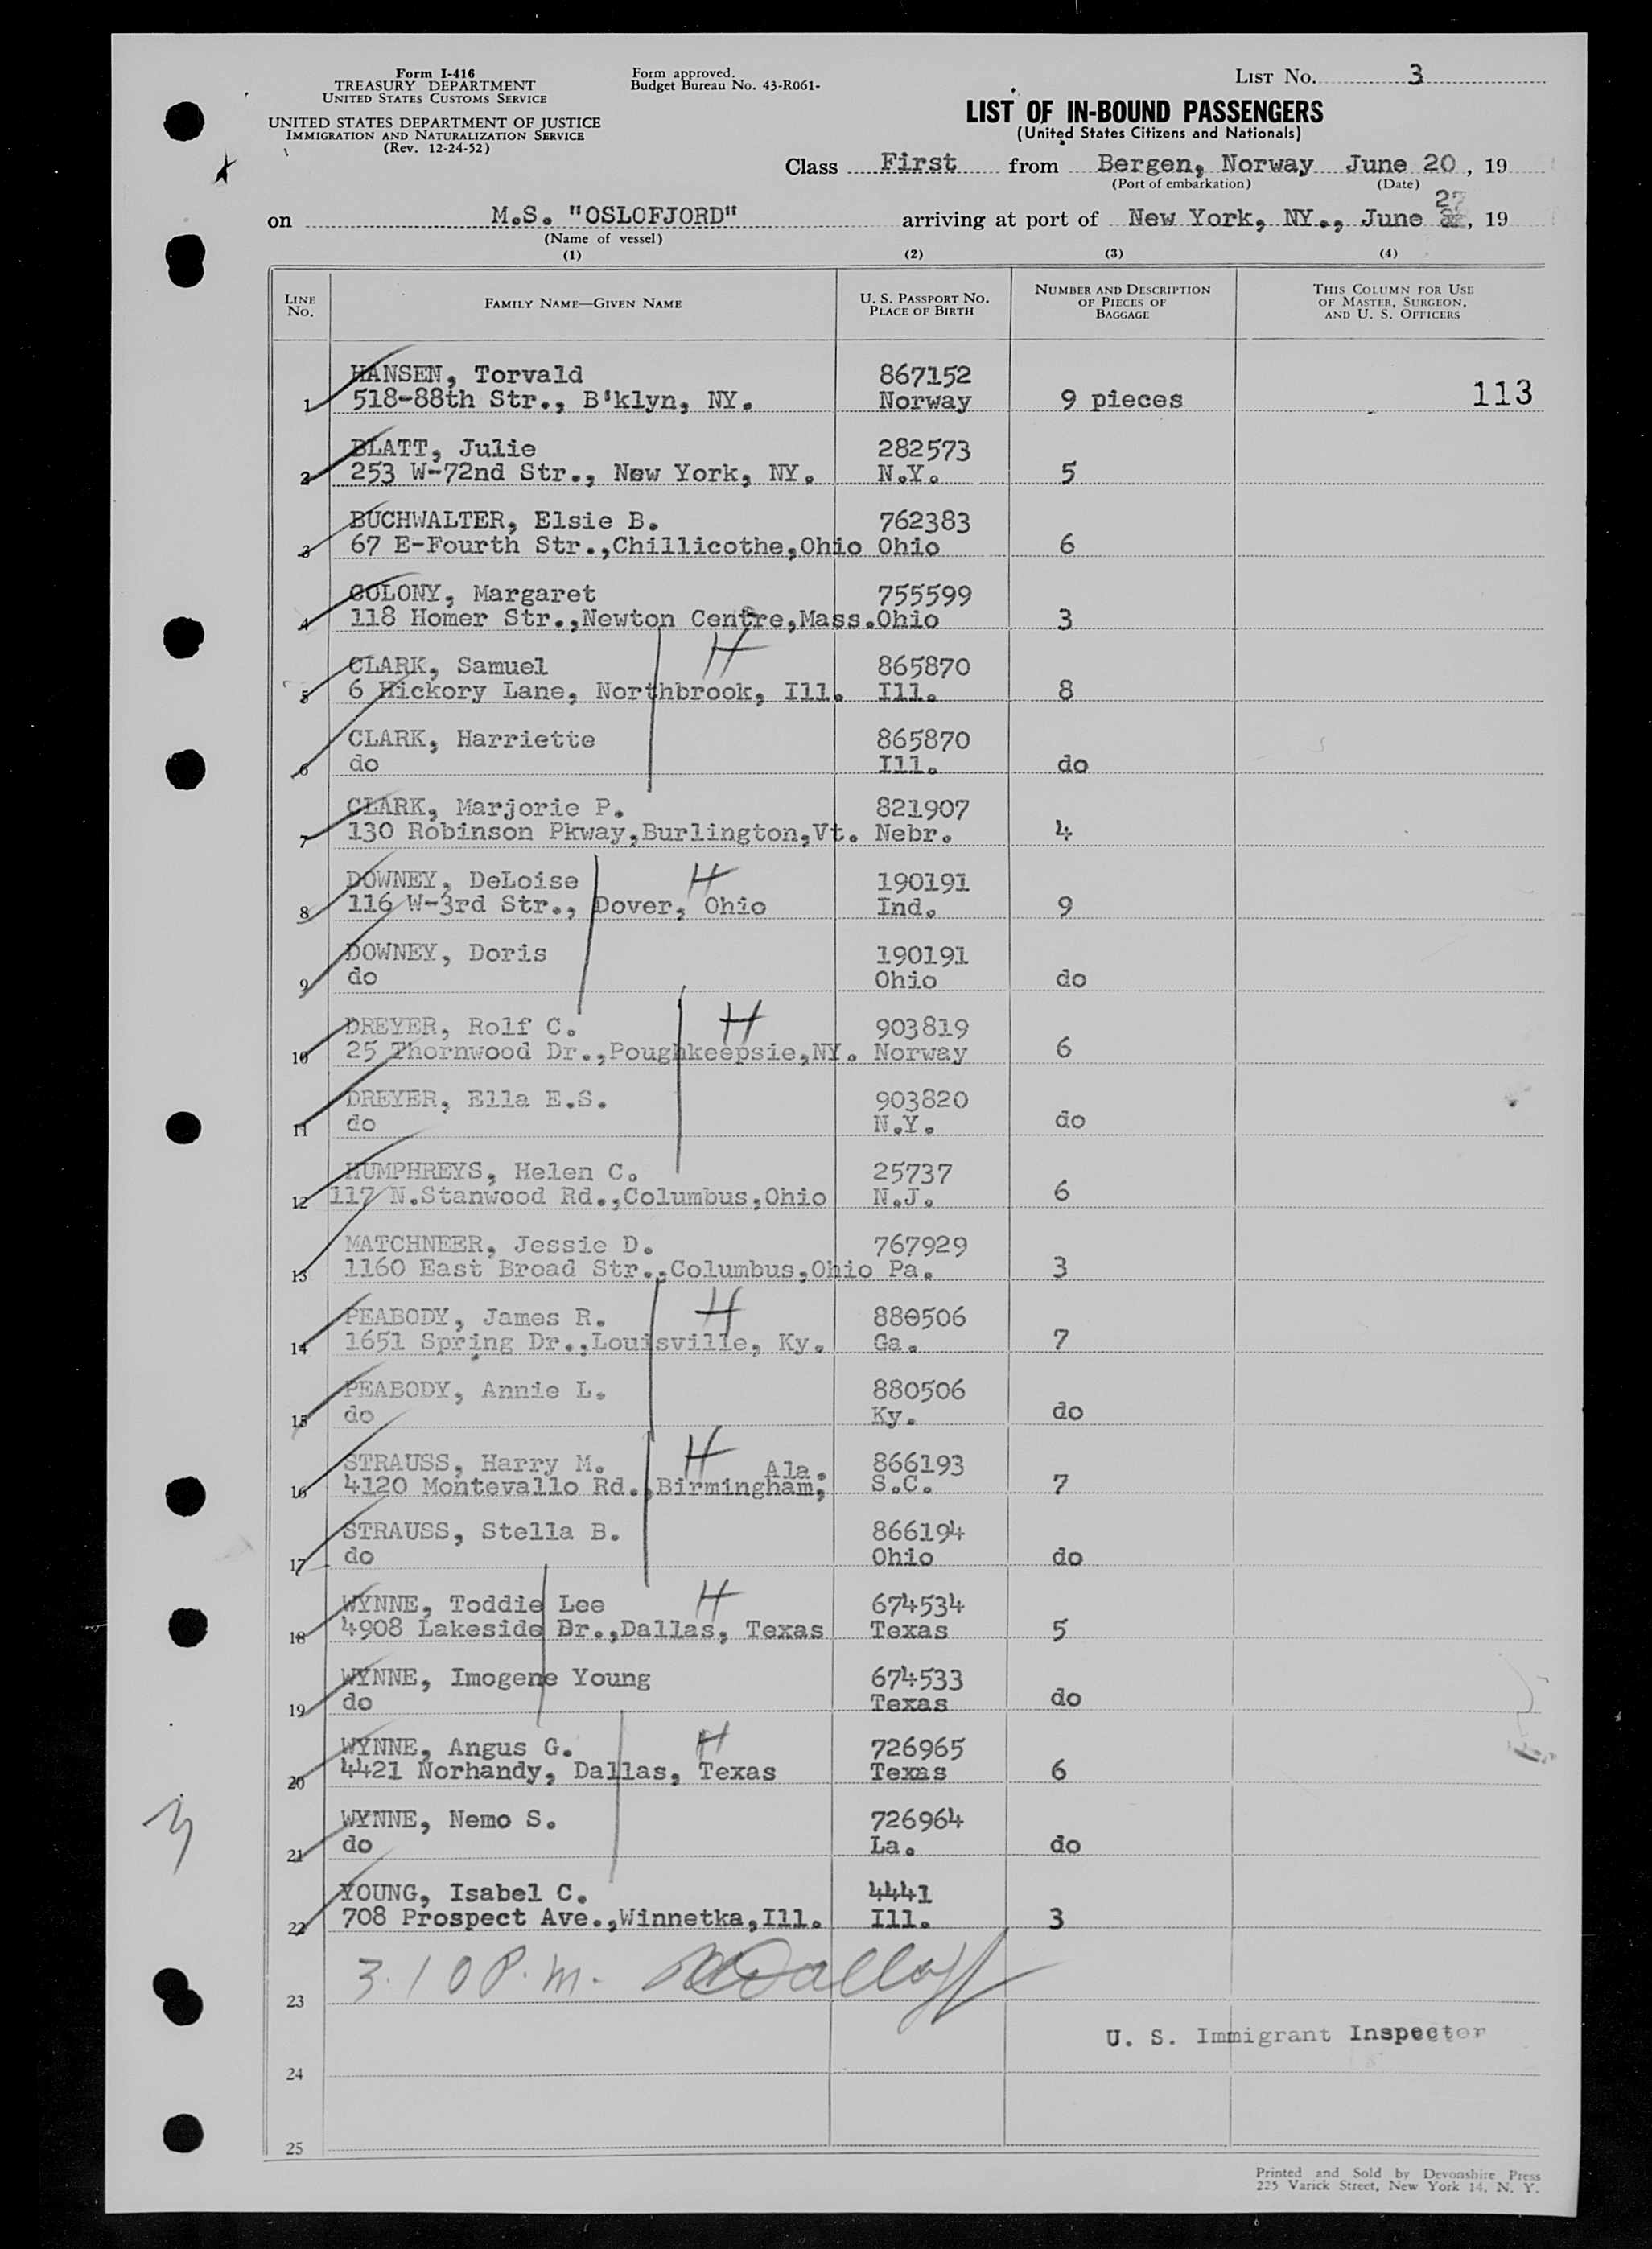 Form I-416
TREASURY DEPARTMENT
UNITED STATES CUSTOMS SERVICE
UNITED STATES DEPARTMENT OF JUSTICE
IMMIGRATION AND NATURALIZATION SERVICE
(Rev. 12-24-52)
Form approved.
Budget Bureau No. 43-R061-
LIST No. 3
LIST OF IN-BOUND PASSENGERS
(United States Citizens and Nationals)
Class First from Bergen, Norway June 20, 19
(Port of embarkation) (Date)
on M.S. "OSLOFJORD" arriving at port of New York, NY., June 27, 19
(Name of vessel)
(1) (2) (3) (4)
LINE No. FAMILY NAME—GIVEN NAME U. S. PASSPORT No. PLACE OF BIRTH NUMBER AND DESCRIPTION OF PIECES OF BAGGAGE THIS COLUMN FOR USE OF MASTER, SURGEON, AND U. S. OFFICERS
HANSEN, Torvald 867152
1 518-88th Str., B'klyn, NY. Norway 9 pieces 113
BLATT, Julie 282573
2 253 W-72nd Str., New York, NY. N.Y. 5
BUCHWALTER, Elsie B. 762383
3 67 E-Fourth Str.,Chillicothe,Ohio Ohio 6
COLONY, Margaret 755599
4 118 Homer Str.,Newton Centre,Mass.Ohio 3
CLARK, Samuel H 865870
5 6 Hickory Lane, Northbrook, Ill. Ill. 8
CLARK, Harriette 865870
6 do Ill. do
CLARK, Marjorie P. 821907
7 130 Robinson Pkway,Burlington,Vt. Nebr. 4
DOWNEY, DeLoise H 190191
8 116 W-3rd Str., Dover, Ohio Ind. 9
DOWNEY, Doris 190191
9 do Ohio do
DREYER, Rolf C. H 903819
10 25 Thornwood Dr.,Poughkeepsie,NY. Norway 6
DREYER, Ella E.S. 903820
11 do N.Y. do
HUMPHREYS, Helen C. 25737
12 117 N.Stanwood Rd.,Columbus,Ohio N.J. 6
MATCHNEER, Jessie D. 767929
13 1160 East Broad Str.,Columbus,Ohio Pa. 3
PEABODY, James R. H 880506
14 1651 Spring Dr.,Louisville, Ky. Ga. 7
PEABODY, Annie L. 880506
15 do Ky. do
STRAUSS, Harry M. H Ala. 866193
16 4120 Montevallo Rd.,Birmingham, S.C. 7
STRAUSS, Stella B. 866194
17 do Ohio do
WYNNE, Toddie Lee H 674534
18 4908 Lakeside Dr.,Dallas, Texas Texas 5
WYNNE, Imogene Young 674533
19 do Texas do
WYNNE, Angus G. H 726965
20 4421 Norhandy, Dallas, Texas Texas 6
WYNNE, Nemo S. 726964
21 do La. do
YOUNG, Isabel C. 4441
22 708 Prospect Ave.,Winnetka,Ill. Ill. 3
3.10 P.m.
23
U. S. Immigrant Inspector
24
25
Printed and Sold by Devonshire Press
225 Varick Street, New York 14, N. Y.